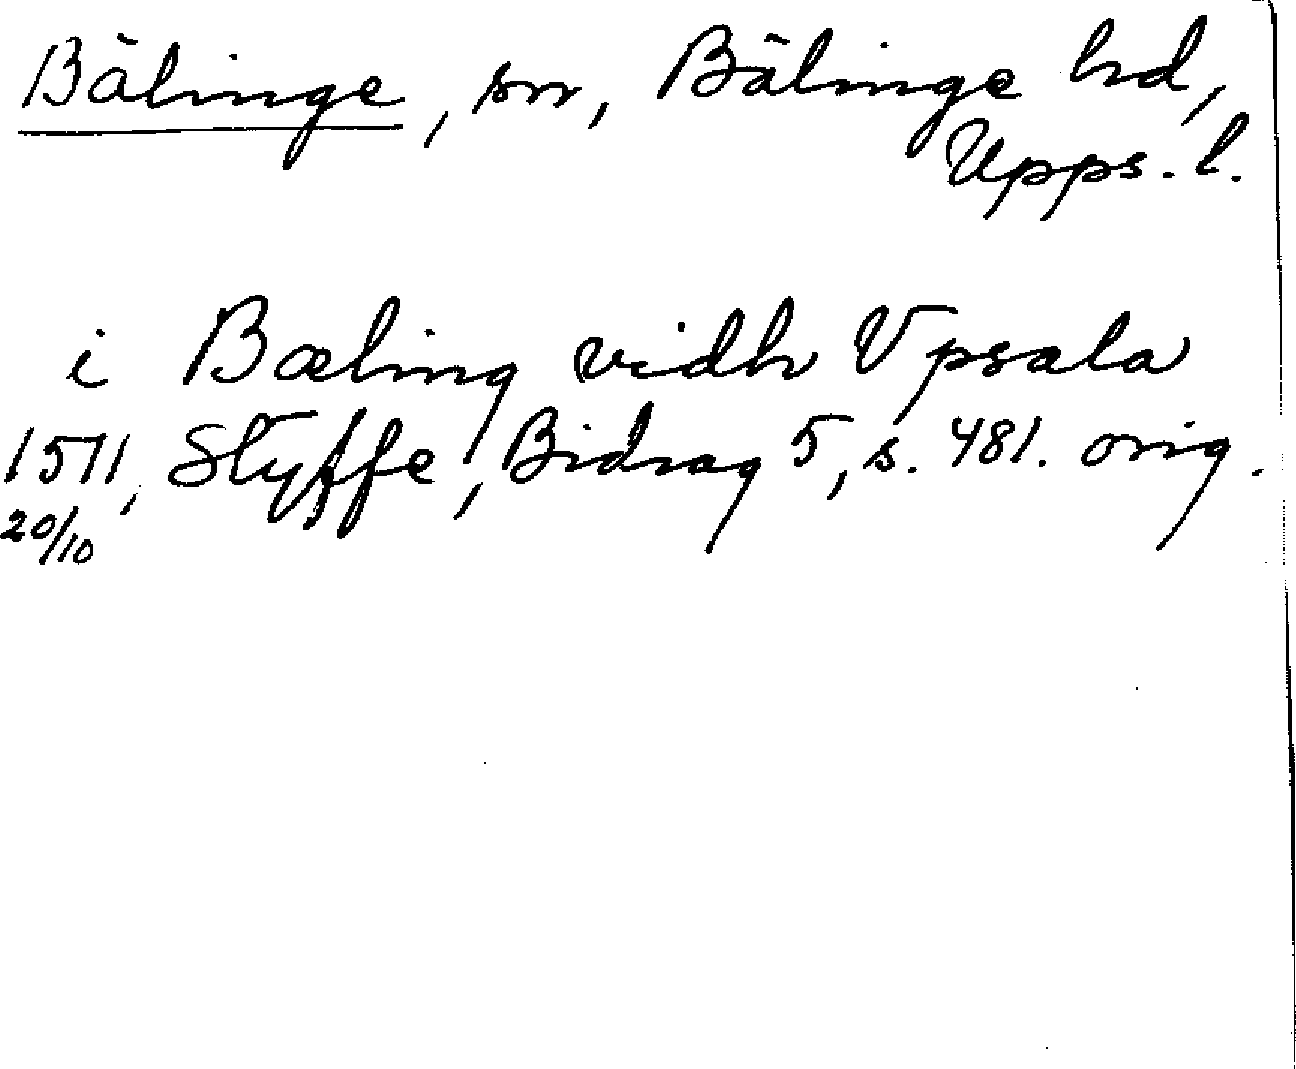 Bälinge, sn, Bälinge hd,
Upps. l.
i Bæling vidh Vpsala
1511, Styffe, Bidrag 5, s. 481. orig.
20/10